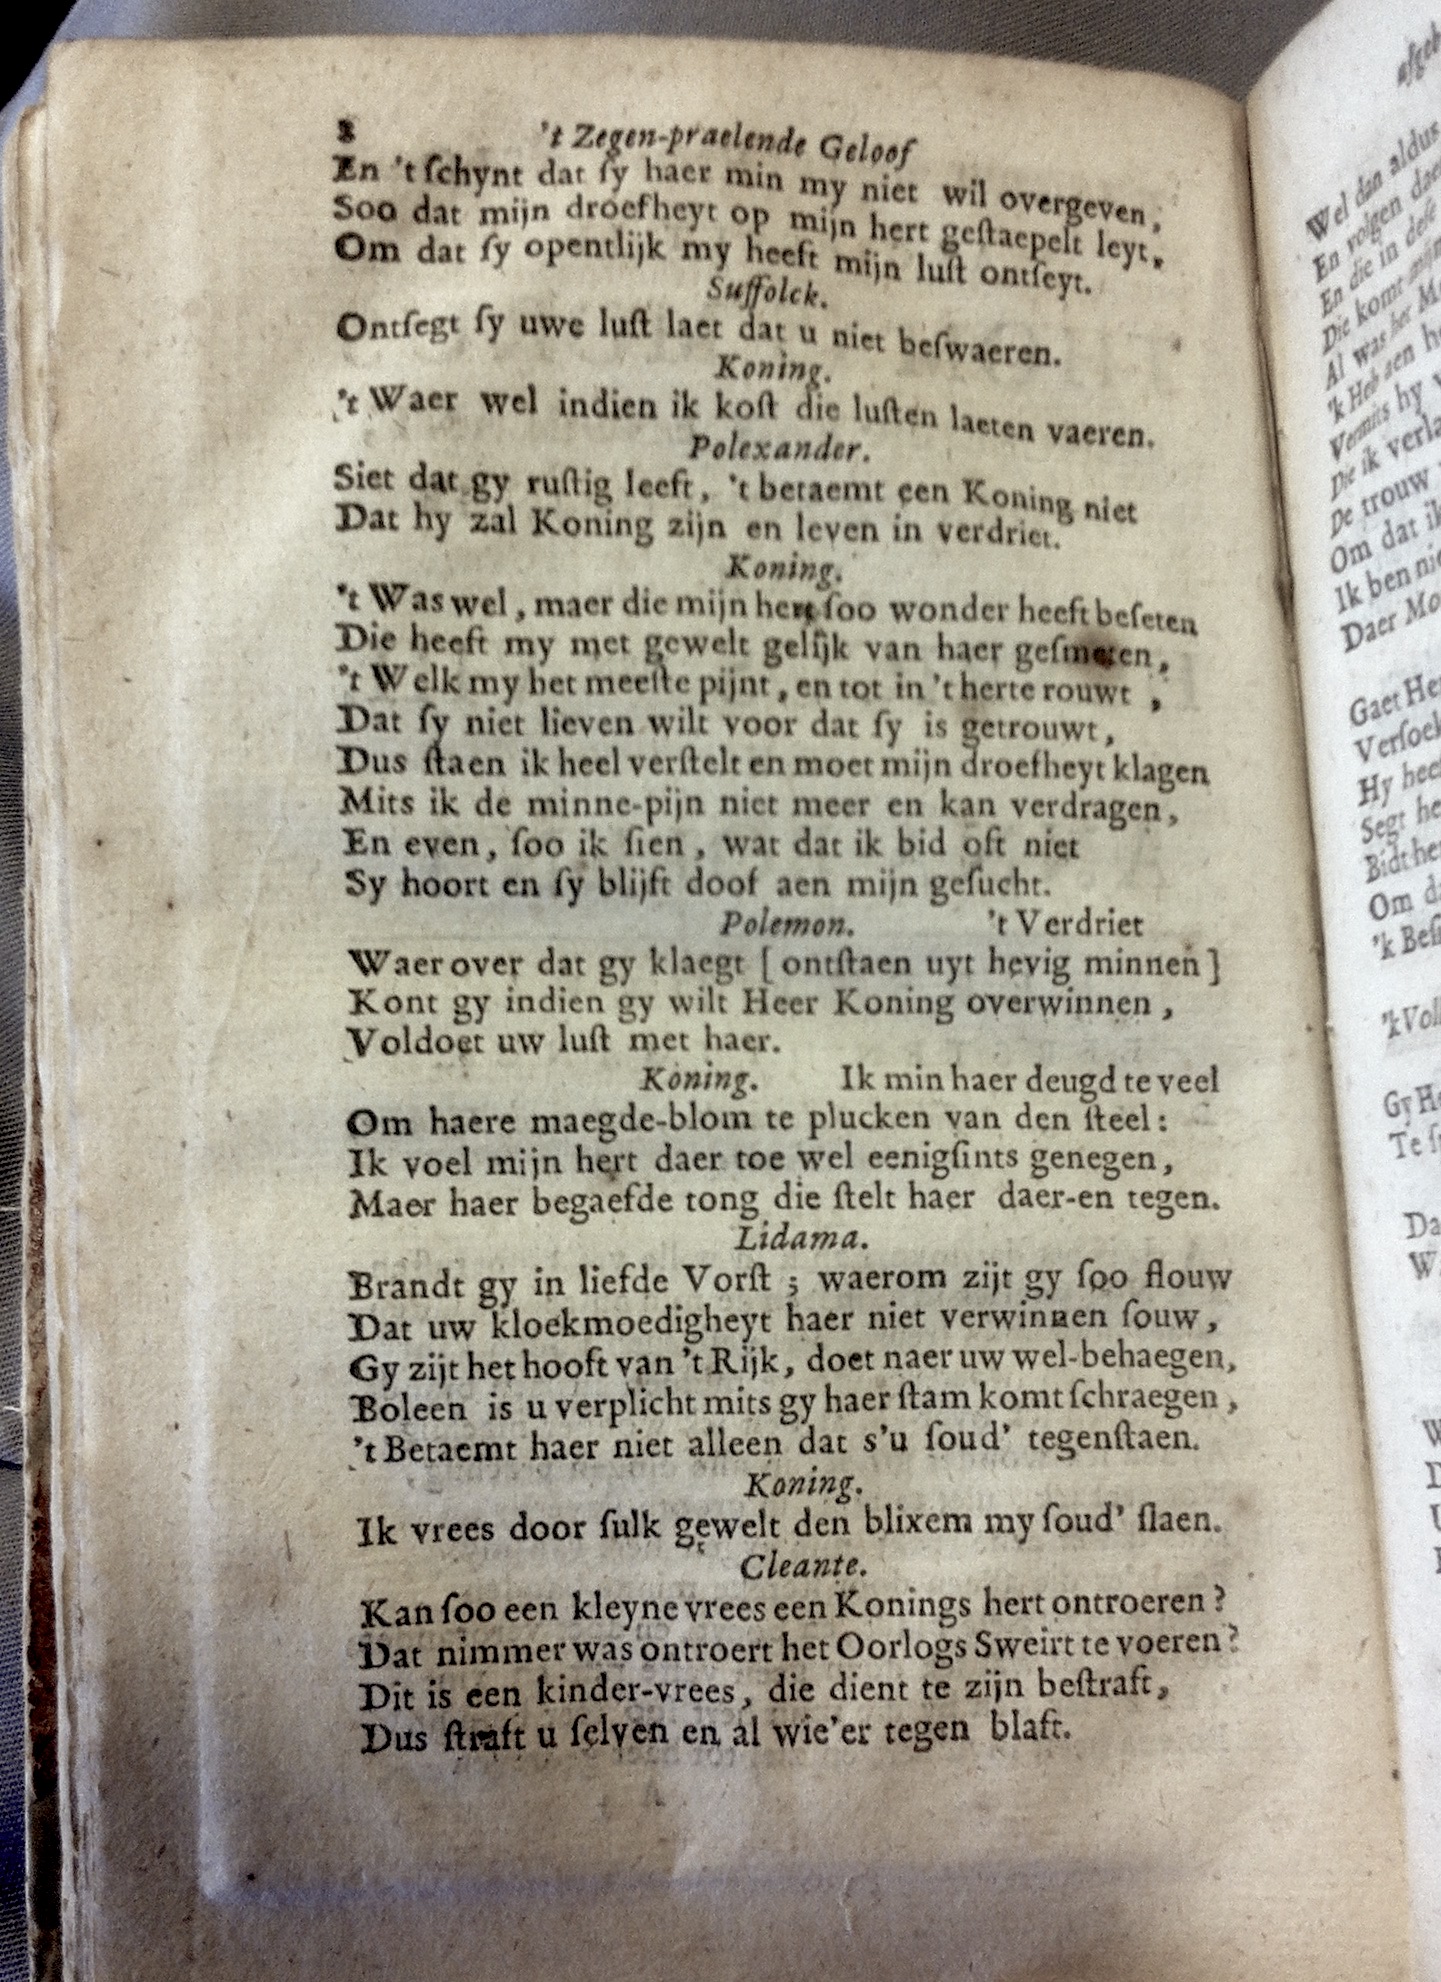 8 't Zegen-praelende Geloof
En 't ſchynt dat ſy haer min my niet wil overgeven,
Soo dat mijn droefheyt op mijn hert geſtaepelt leyt,
Om dat ſy opentlijk my heeft mijn luſt ontſeyt.
Suffolck.
Ontſegt ſy uwe luſt laet dat u niet beſwaeren.
Koning.
't Waer wel indien ik koſt die luſten laeten vaeren.
Polexander.
Siet dat gy ruſtig leeft, 't betaemt een Koning niet
Dat hy zal Koning zijn en leven in verdriet.
Koning.
't Was wel, maer die mijn hert ſoo wonder heeft beſeten
Die heeft my met gewelt gelijk van haer geſmeten,
't Welk my het meeſte pijnt, en tot in 't herte rouwt,
Dat ſy niet lieven wilt voor dat ſy is getrouwt,
Dus ſtaen ik heel verſtelt en moet mijn droefheyt klagen
Mits ik de minne-pijn niet meer en kan verdragen,
En even, ſoo ik ſien, wat dat ik bid oft niet
Sy hoort en ſy blijft doof aen mijn geſucht.
Polemon. 't Verdriet
Waer over dat gy klaegt [ ontſtaen uyt hevig minnen ]
Kont gy indien gy wilt Heer Koning overwinnen,
Voldoet uw luſt met haer.
Koning. Ik min haer deugd te veel
Om haere maegde-blom te plucken van den ſteel:
Ik voel mijn hert daer toe wel eenigſints genegen,
Maer haer begaefde tong die ſtelt haer daer-en tegen.
Lidama.
Brandt gy in liefde Vorſt; waerom zijt gy ſoo flouw
Dat uw kloekmoedigheyt haer niet verwinnen ſouw,
Gy zijt het hooft van 't Rijk, doet naer uw wel-behaegen,
Boleen is u verplicht mits gy haer ſtam komt ſchraegen,
't Betaemt haer niet alleen dat s'u ſoud' tegenſtaen.
Koning.
Ik vrees door ſulk gewelt den blixem my ſoud' ſlaen.
Cleante.
Kan ſoo een kleyne vrees een Konings hert ontroeren?
Dat nimmer was ontroert het Oorlogs Sweirt te voeren?
Dit is een kinder-vrees, die dient te zijn beſtraft,
Dus ſtraft u ſelven en al wie'er tegen blaft.
Wel dan aldus
En volgen daer
En die in deſe
Die komt mijn
Al was het
'k Heb aen
Vermits hy
Die ik
De trouw
Om dat ik
Ik ben
Daer
Gaet
Hy
Segt
Bidt
Om
'k
Gy
Te